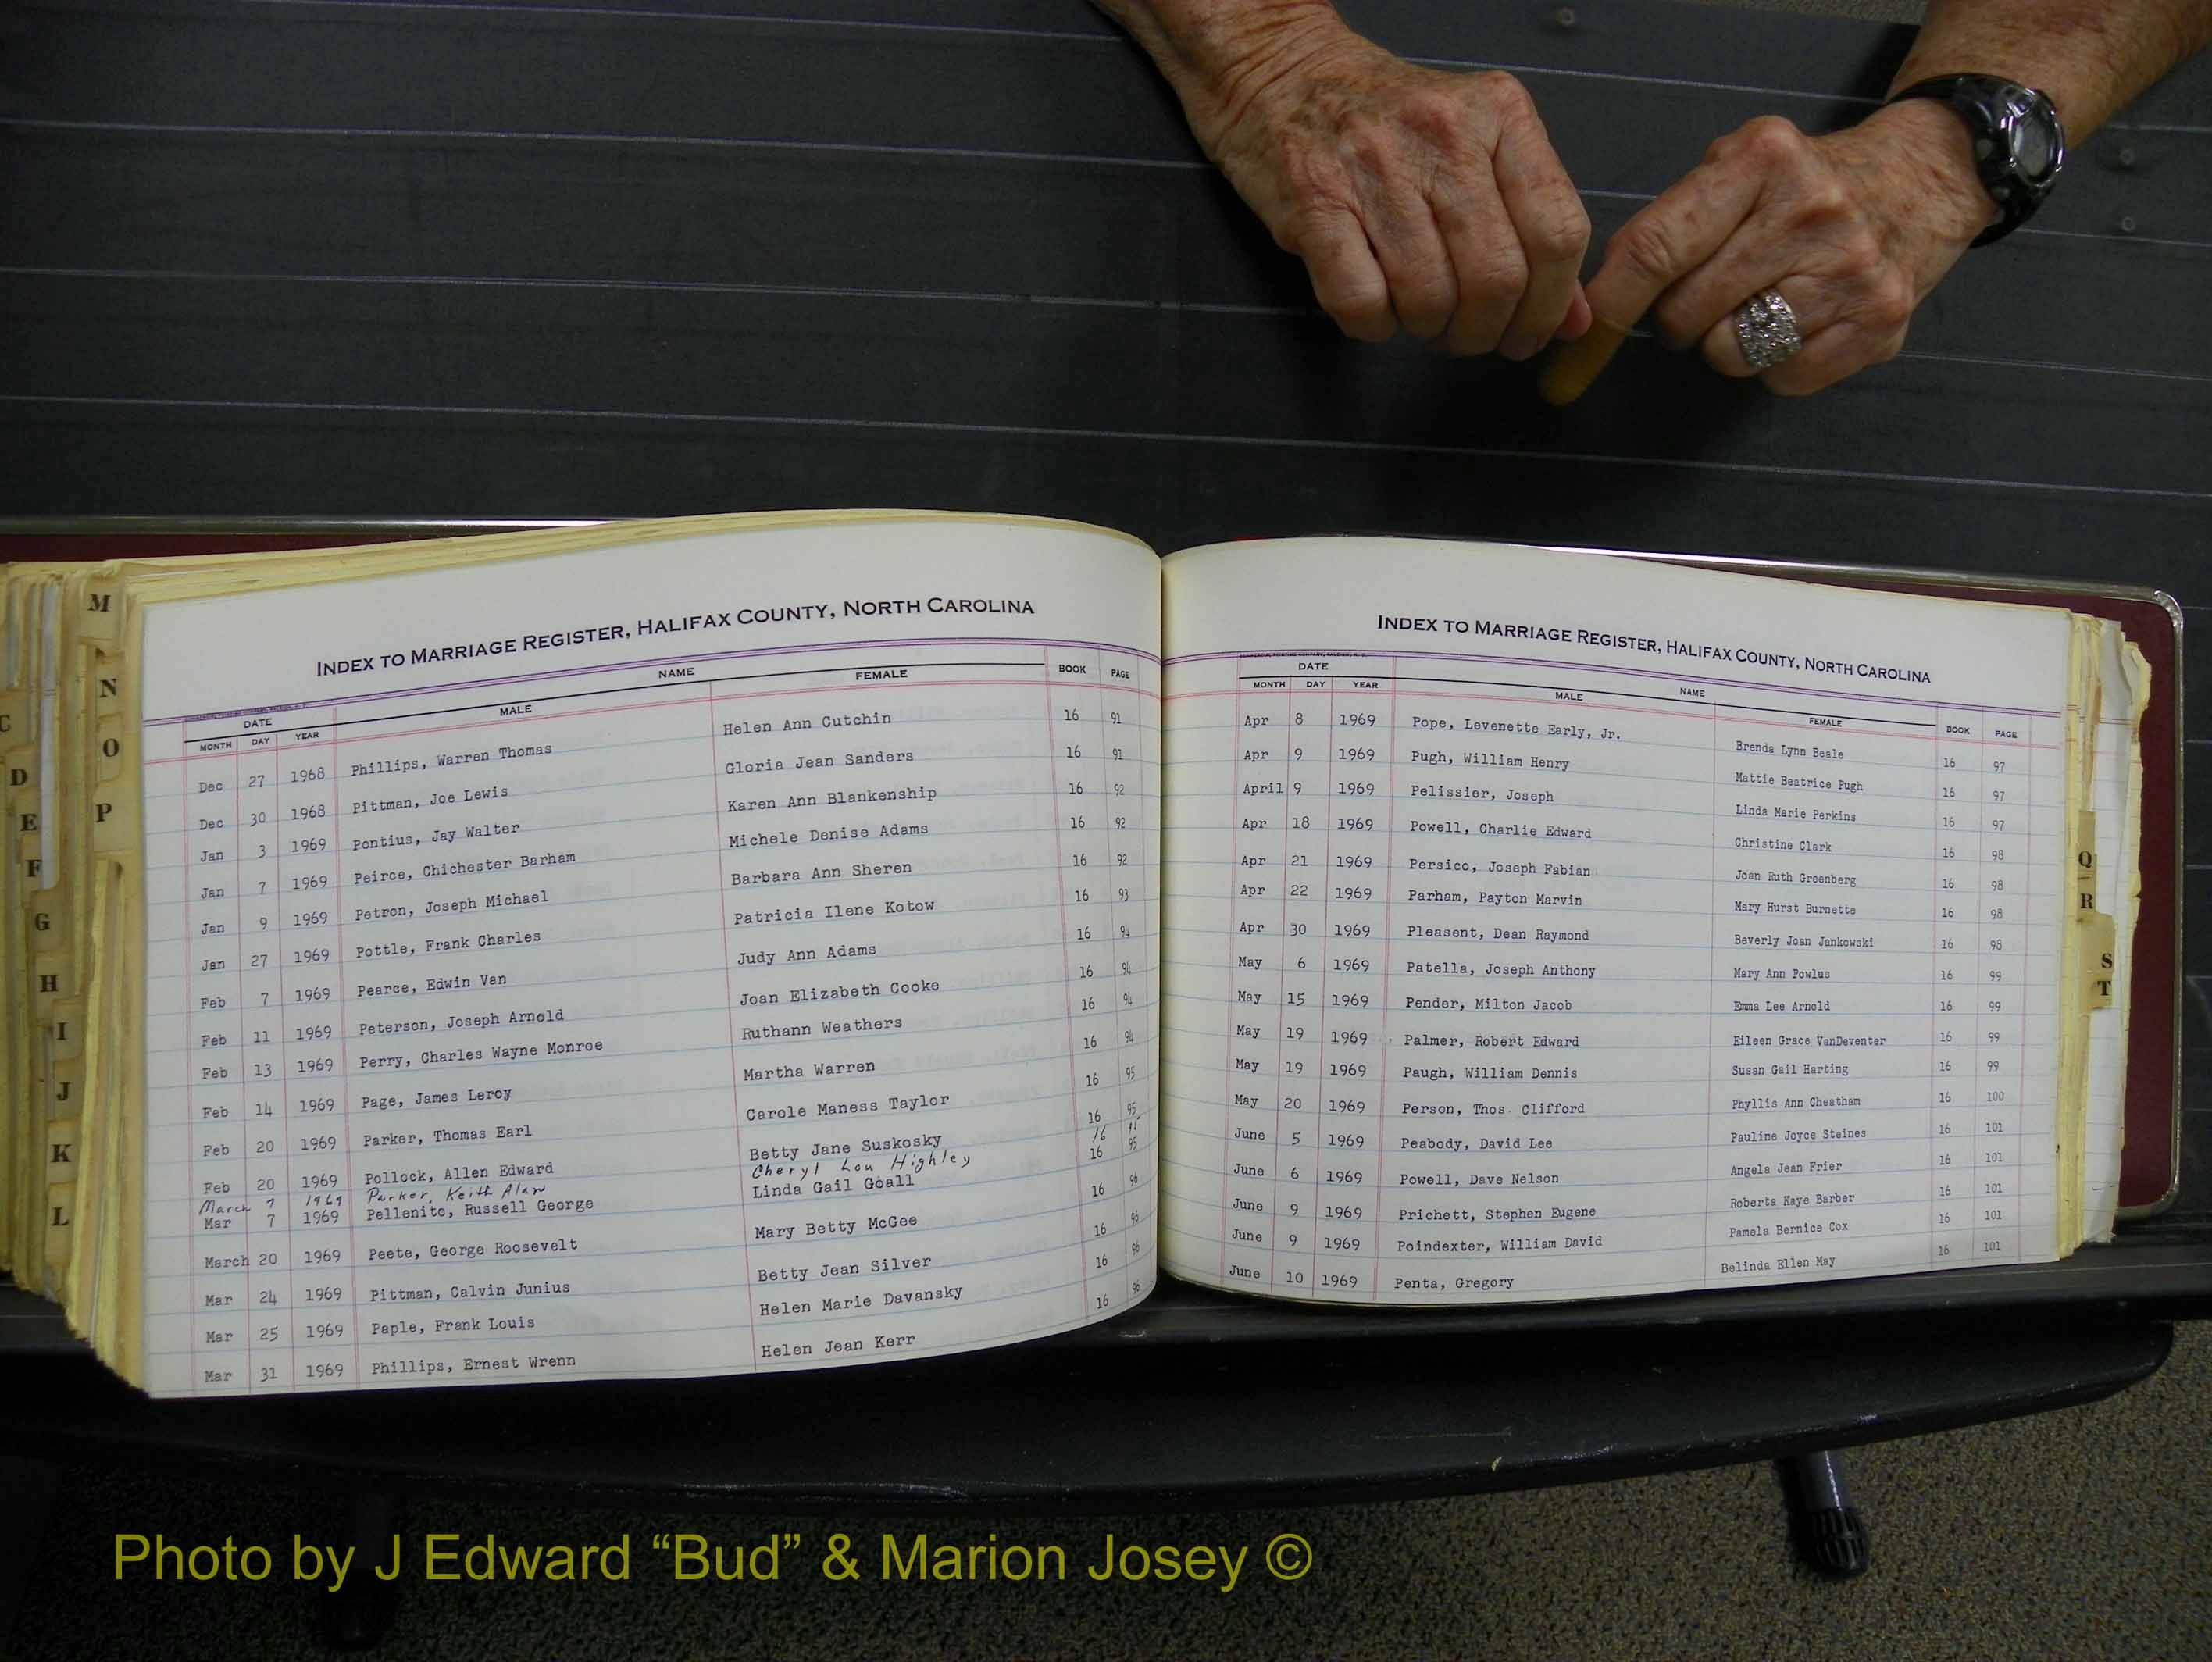 C
D
E
F
G
H
I
J
K
L
M
N
O
P
INDEX TO MARRIAGE REGISTER, HALIFAX COUNTY, NORTH CAROLINA
DATE NAME BOOK PAGE
MONTH DAY YEAR MALE FEMALE
Dec 27 1968 Phillips, Warren Thomas Helen Ann Cutchin 16 91
Dec 30 1968 Pittman, Joe Lewis Gloria Jean Sanders 16 91
Jan 3 1969 Pontius, Jay Walter Karen Ann Blankenship 16 92
Jan 7 1969 Peirce, Chichester Barham Michele Denise Adams 16 92
Jan 9 1969 Petron, Joseph Michael Barbara Ann Sheren 16 92
Jan 27 1969 Pottle, Frank Charles Patricia Ilene Kotow 16 93
Feb 7 1969 Pearce, Edwin Van Judy Ann Adams 16 94
Feb 11 1969 Peterson, Joseph Arnold Joan Elizabeth Cooke 16 94
Feb 13 1969 Perry, Charles Wayne Monroe Ruthann Weathers 16 94
Feb 14 1969 Page, James Leroy Martha Warren 16 94
Feb 20 1969 Parker, Thomas Earl Carole Maness Taylor 16 95
Feb 20 1969 Pollock, Allen Edward Betty Jane Suskosky 16 95
March 7 1969 Parker, Keith Alan Cheryl Lou Highley 16
Mar 7 1969 Pellenito, Russell George Linda Gail Goall 16 95
March 20 1969 Peete, George Roosevelt Mary Betty McGee 16 96
Mar 24 1969 Pittman, Calvin Junius Betty Jean Silver 16 96
Mar 25 1969 Paple, Frank Louis Helen Marie Davansky 16 96
Mar 31 1969 Phillips, Ernest Wrenn Helen Jean Kerr 16 96
INDEX TO MARRIAGE REGISTER, HALIFAX COUNTY, NORTH CAROLINA
DATE NAME BOOK PAGE
MONTH DAY YEAR MALE FEMALE
Apr 8 1969 Pope, Levenette Early, Jr. Brenda Lynn Beale 16 97
Apr 9 1969 Pugh, William Henry Mattie Beatrice Pugh 16 97
April 9 1969 Pelissier, Joseph Linda Marie Perkins 16 97
Apr 18 1969 Powell, Charlie Edward Christine Clark 16 98
Apr 21 1969 Persico, Joseph Fabian Joan Ruth Greenberg 16 98
Apr 22 1969 Parham, Payton Marvin Mary Hurst Burnette 16 98
Apr 30 1969 Pleasent, Dean Raymond Beverly Joan Jankowski 16 98
May 6 1969 Patella, Joseph Anthony Mary Ann Powlus 16 99
May 15 1969 Pender, Milton Jacob Emma Lee Arnold 16 99
May 19 1969 Palmer, Robert Edward Eileen Grace VanDeventer 16 99
May 19 1969 Paugh, William Dennis Susan Gail Harting 16 99
May 20 1969 Person, Thos. Clifford Phyllis Ann Cheatham 16 100
June 5 1969 Peabody, David Lee Pauline Joyce Steines 16 101
June 6 1969 Powell, Dave Nelson Angela Jean Frier 16 101
June 9 1969 Prichett, Stephen Eugene Roberta Kaye Barber 16 101
June 9 1969 Poindexter, William David Pamela Bernice Cox 16 101
June 10 1969 Penta, Gregory Belinda Ellen May 16 101
Q
R
S
T
Photo by J Edward “Bud” & Marion Josey ©